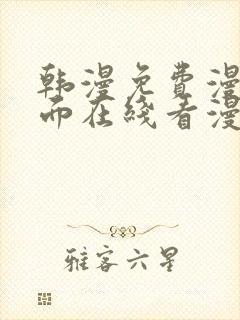 韩漫免费漫
而在线看漫
雅客六星